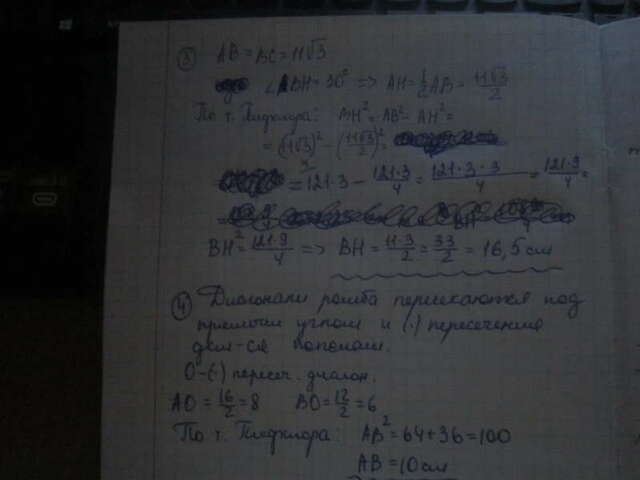 ③ AB = BC = 11√3
∠ABH = 30° => AH = 1/2 AB = 11√3/2
По т. Пифагора: BH² = AB² - AH² =
= (11√3)² - (11√3/2)² =
= 121·3 - 121·3/4 = 121·3·3/4 = 121·9/4 =
BH² = 121·9/4 => BH = 11·3/2 = 33/2 = 16,5 см
④ Диагонали ромба пересекаются под
прямым углом и (·) пересечения
дел-ся пополам.
O-(·) пересеч. диагон.
AO = 16/2 = 8 BO = 12/2 = 6
По т. Пифагора: AB² = 64 + 36 = 100
AB = 10 см